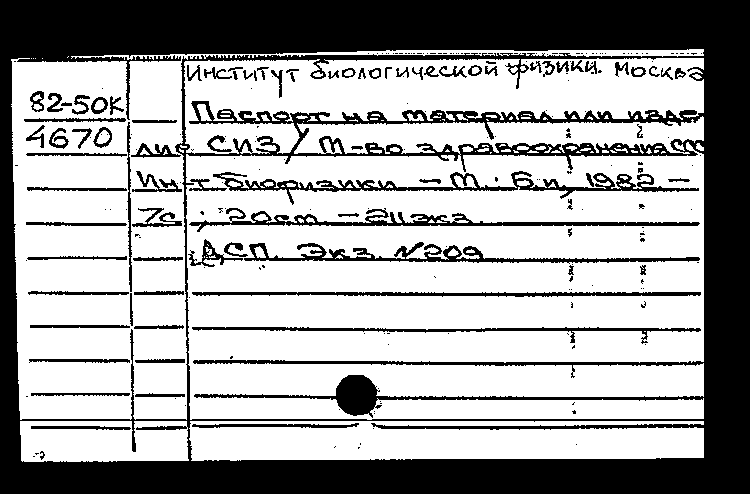 Институт биологической физики. Москва
82-50к
Паспорт на материал или изде-
4670
лие СИЗ / М-во здравоохранения СС
Ин-т биофизики. — М.: Б.и., 1982 —
7с.; 20см. — 211экз.
ДСП. Экз. №209